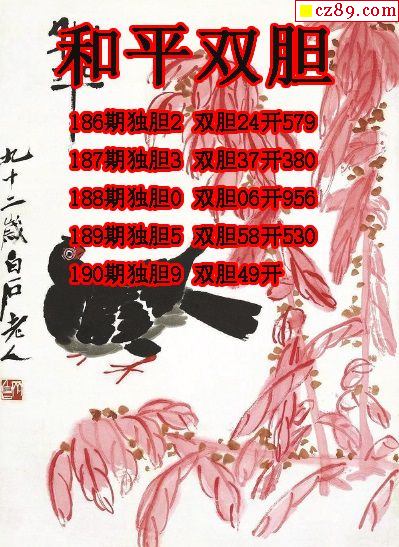 cz89.com
和平双胆
186期独胆2 双胆24开579
187期独胆3 双胆37开380
188期独胆0 双胆06开956
189期独胆5 双胆58开530
190期独胆9 双胆49开
九十二岁白石老人